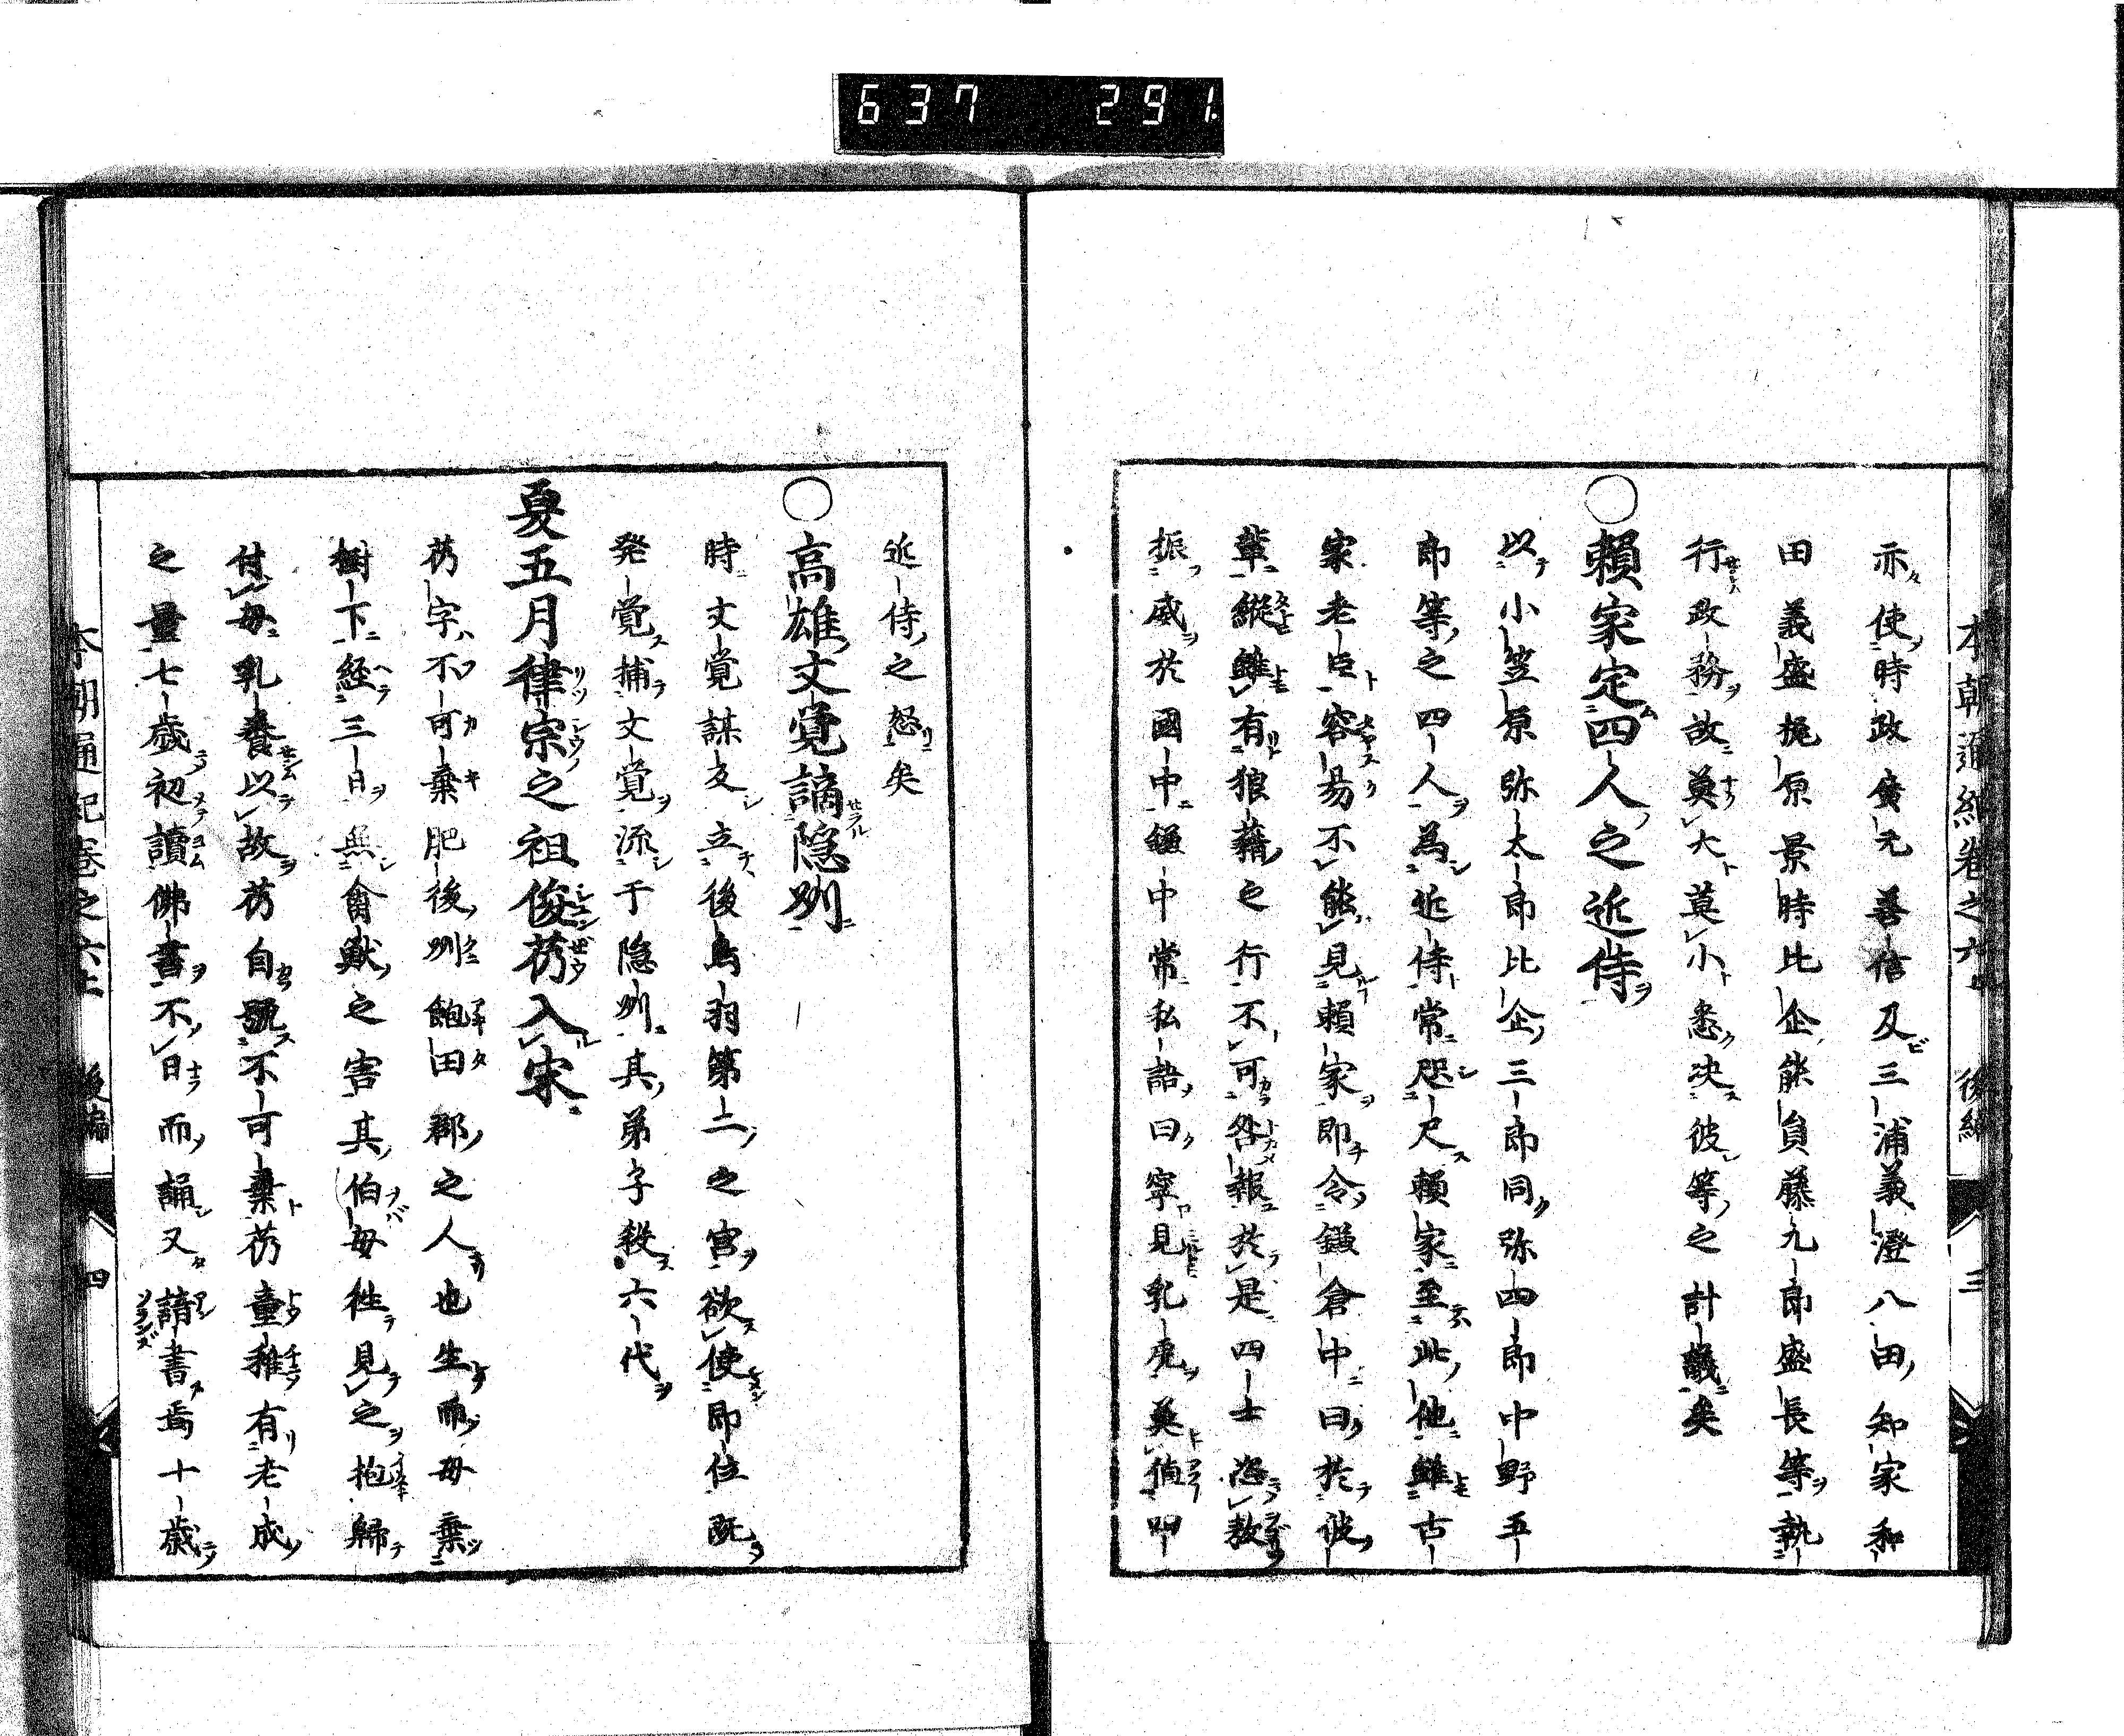 637 291
本朝通紀巻之六上 後編 三
亦使時政廣元善信及三浦義澄八田知家和
田義盛梶原景時比企能員藤九郎盛長等執
行政務故莫大莫小悉決彼等之計議矣
○賴家定四人之近侍
以小笠原弥太郎比企三郎同弥四郎中野五
郎等之四人為近侍常咫尺賴家至此他雖古
家老臣容易不能見賴家即令鎌倉中曰於彼
輩縦雖有狼藉之行不可咎報於是四士恣敖
振威於國中鎌中常私語曰寧見乳虎莫值四
近侍之怒矣
○高雄文覚謫隠州
時文覚謀反立後鳥羽第二之宮欲使即位既
発覚捕文覚流于隠州其弟子殺六代
夏五月律宗之祖俊芿入宋
芿字不可棄肥後州飽田郡之人也生而母棄
樹下経三日無禽獣之害其伯母往見之抱歸
付母乳養以故芿自號不可棄芿童稚有老成
之量七歳初讀佛書不日而誦又請書焉十歳
本朝通紀巻之六上 後編 四